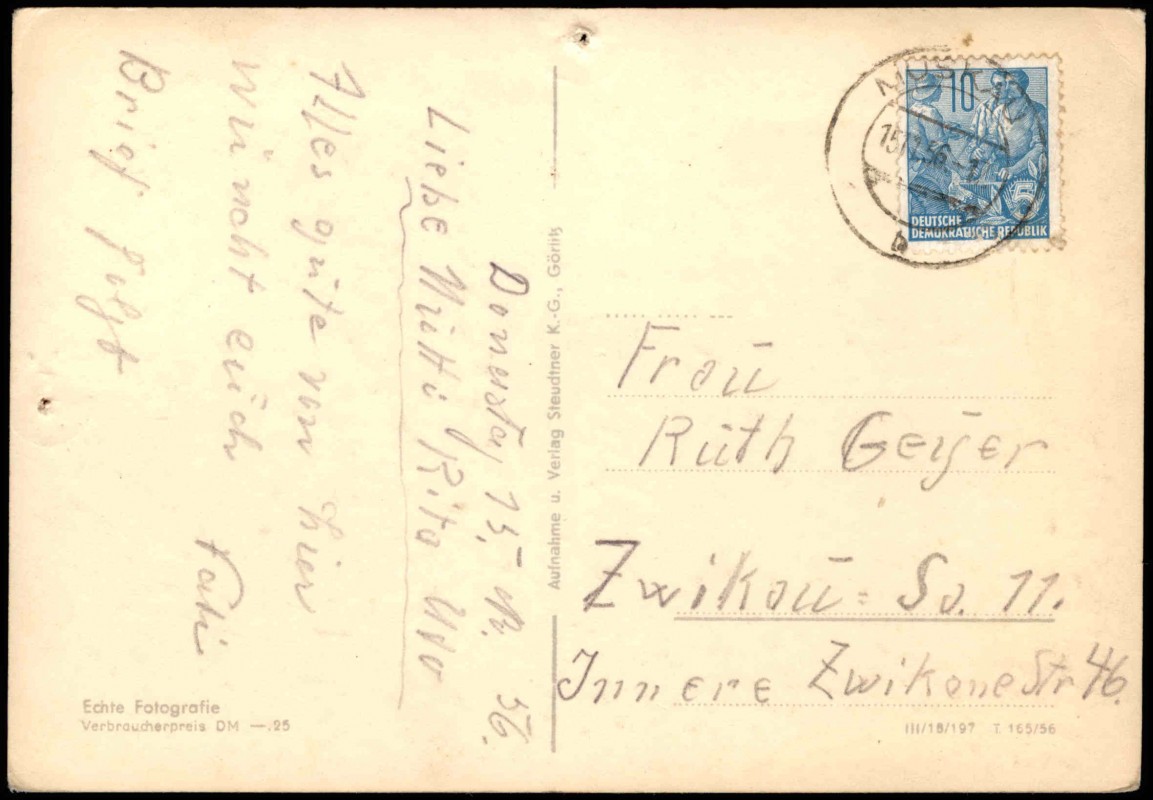 Donerstag, 15. III. 56.
Liebe Mutti Rita Udo
Alles gute vom hier
wünscht euch
Vati
Brief folgt
Echte Fotografie
Verbraucherpreis DM —.25
Aufnahme u. Verlag Steudtner K.-G., Görlitz
10
5
DEUTSCHE
DEMOKRATISCHE REPUBLIK
b
Frau
Ruth Geyer
Zwikau = Sa. 11.
Innere Zwikaue Str 46.
III/18/197 T 165/56